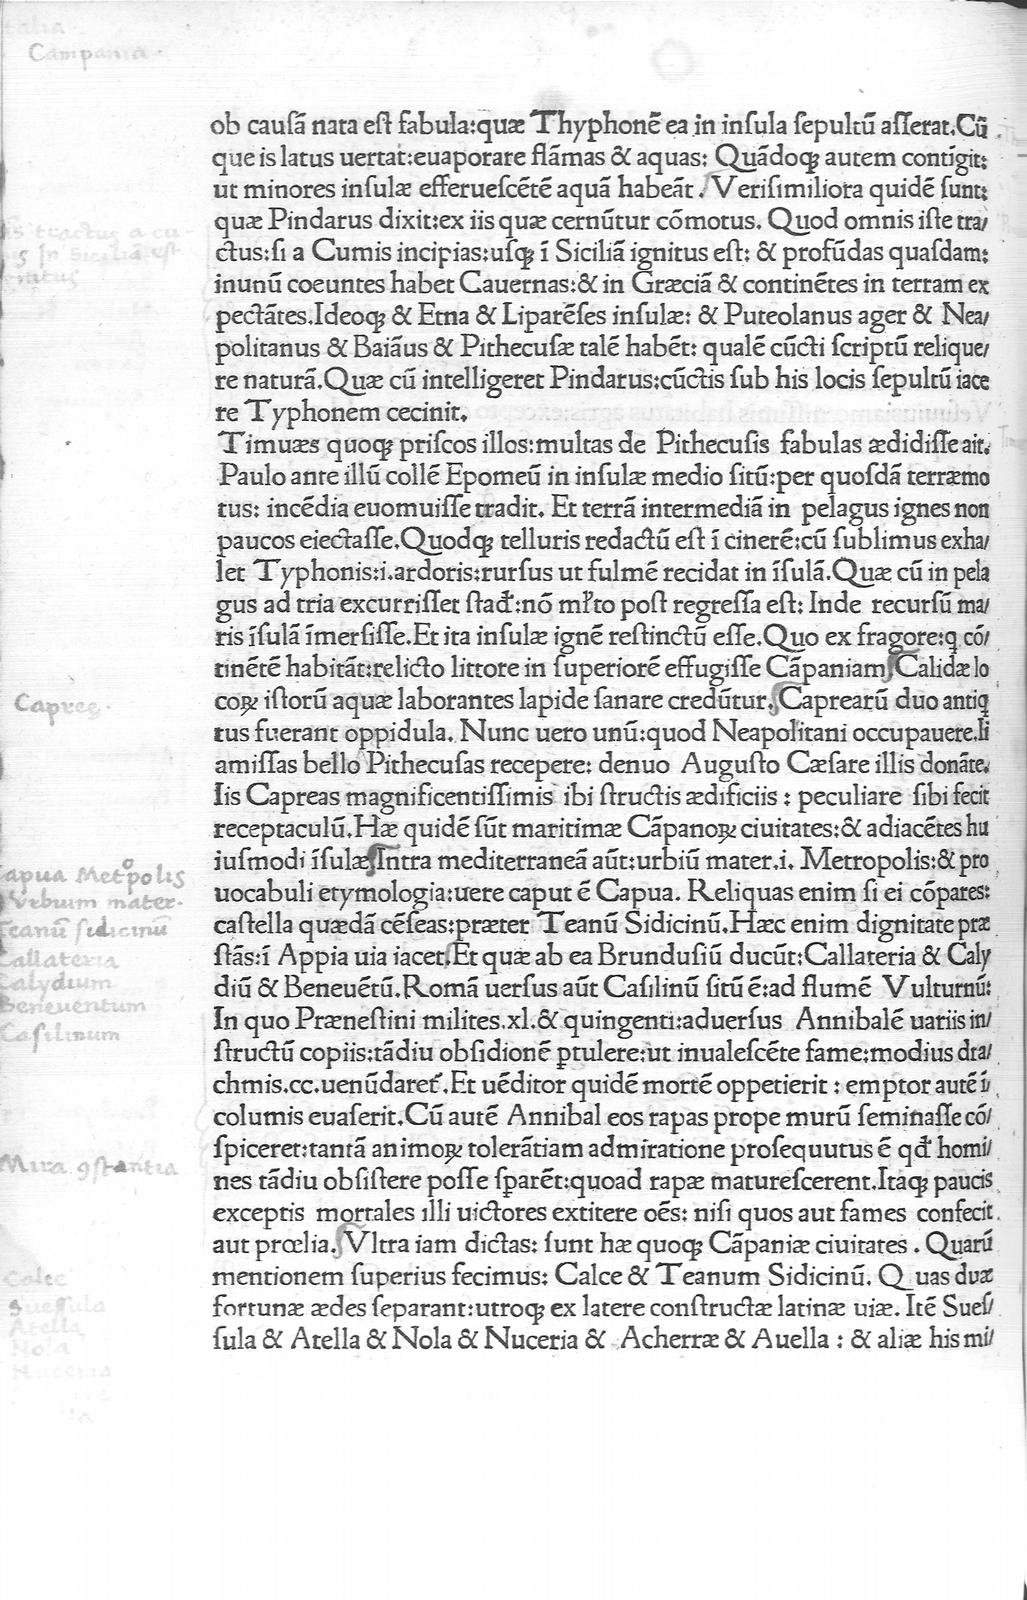 Campania
ob causã nata est fabula:quæ Thyphonẽ ea in insula sepultũ asserat.Cũ
que is latus uertat:euaporare flãmas & aquas: Quãdoqꝫ autem contigit:
ut minores insulæ efferuescẽtẽ aquã habeãt. Verisimiliora quidẽ sunt:
quæ Pindarus dixit:ex iis quæ cernũtur cõmotus. Quod omnis iste tra/
ctus:si a Cumis incipias:usqꝫ ĩ Siciliã ignitus est: & profũdas quasdam:
inunũ coeuntes habet Cauernas:& in Græciã & continẽtes in terram ex
pectãtes.Ideoqꝫ & Etna & Liparẽses insulæ: & Puteolanus ager & Nea/
politanus & Baiãus & Pithecusæ talẽ habẽt: qualẽ cũcti scriptũ relique/
re naturã.Quæ cũ intelligeret Pindarus:cũctis sub his locis sepultũ iace
re Typhonem cecinit.
Timuæs quoqꝫ priscos illos:multas de Pithecusis fabulas ædidisse ait.
Paulo ante illũ collẽ Epomeũ in insulæ medio sitũ:per quosdã terræmo
tus: incẽdia euomuisse tradit. Et terrã intermediã in pelagus ignes non
paucos eiectasse.Quodqꝫ telluris redactũ est ĩ cinerẽ:cũ sublimus exha/
let Typhonis:i.ardoris:rursus ut fulmẽ recidat in ĩsulã.Quæ cũ in pela
gus ad tria excurrisset stad̃:nõ ml̃to post regressa est: Inde recursũ ma/
ris ĩsulã ĩmersisse.Et ita insulæ ignẽ restinctũ esse.Quo ex fragore:q cõ/
tinẽtẽ habitãt:relicto littore in superiorẽ effugisse Cãpaniam Calidæ lo
coꝝ istorũ aquæ laborantes lapide sanare credũtur. Caprearũ duo antiq
tus fuerant oppidula. Nunc uero unũ:quod Neapolitani occupauere.Ii
amissas bello Pithecusas recepere: denuo Augusto Cæsare illis donãte.
Iis Capreas magnificentissimis ibi structis ædificiis : peculiare sibi fecit
receptaculũ.Hæ quidẽ sũt maritimæ Cãpanoꝝ ciuitates:& adiacẽtes hu
iusmodi ĩsulæ Intra mediterraneã aũt:urbiũ mater.i. Metropolis:& pro
uocabuli etymologia:uere caput ẽ Capua. Reliquas enim si ei cõpares:
castella quædã cẽseas:præter Teanũ Sidicinũ.Hæc enim dignitate præ
stãs:ĩ Appia uia iacet.Et quæ ab ea Brundusiũ ducũt:Callateria & Caly
diũ & Beneuẽtũ.Romã uersus aũt Casilinũ sitũ ẽ:ad flumẽ Vulturnũ:
In quo Prænestini milites.xl.& quingenti:aduersus Annibalẽ uariis in/
structũ copiis:tãdiu obsidionẽ ꝑtulere:ut inualescẽte fame:modius dra/
chmis.cc.uenũdaret̃.Et uẽditor quidẽ mortẽ oppetierit : emptor autẽ ĩ/
columis euaserit.Cũ autẽ Annibal eos rapas prope murũ seminasse cõ/
spiceret:tantã animoꝝ tolerãtiam admiratione prosequutus ẽ qd̃ homi/
nes tãdiu obsistere posse sparẽt:quoad rapæ maturescerent.Itãqꝫ paucis
exceptis mortales illi uictores extitere oẽs: nisi quos aut fames confecit.
aut prœlia. Vltra iam dictas: sunt hæ quoqꝫ Cãpaniæ ciuitates . Quarũ
mentionem superius fecimus: Calce & Teanum Sidicinũ. Quas duæ
fortunæ ædes separant:utroqꝫ ex latere constructæ latinæ uiæ. Itẽ Sues/
sula & Atella & Nola & Nuceria & Acherræ & Auella : & aliæ his mi/
Capreę.
apua Metropolis
Vrbium mater.
Teanũ sidicinũ
Callateria
Calydium
Beneuentum
Casilinum
Mira ꝯstantia
Calce
suessula
Atella
Nola
Nuceria